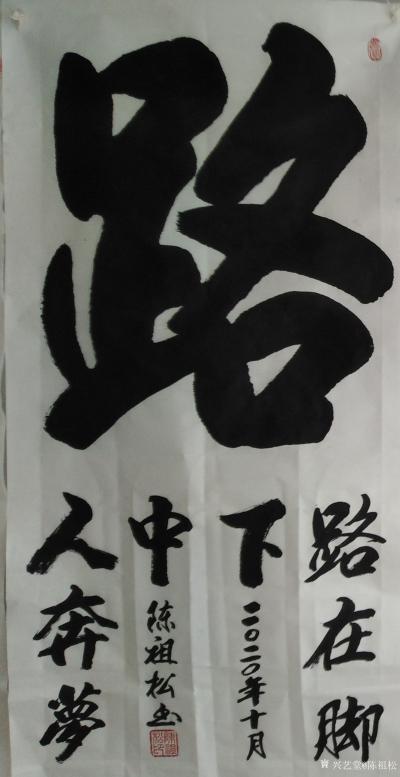 路
路在脚
下
人奔夢
中
二〇二〇年十月
陈祖松书
兴艺堂@陈祖松